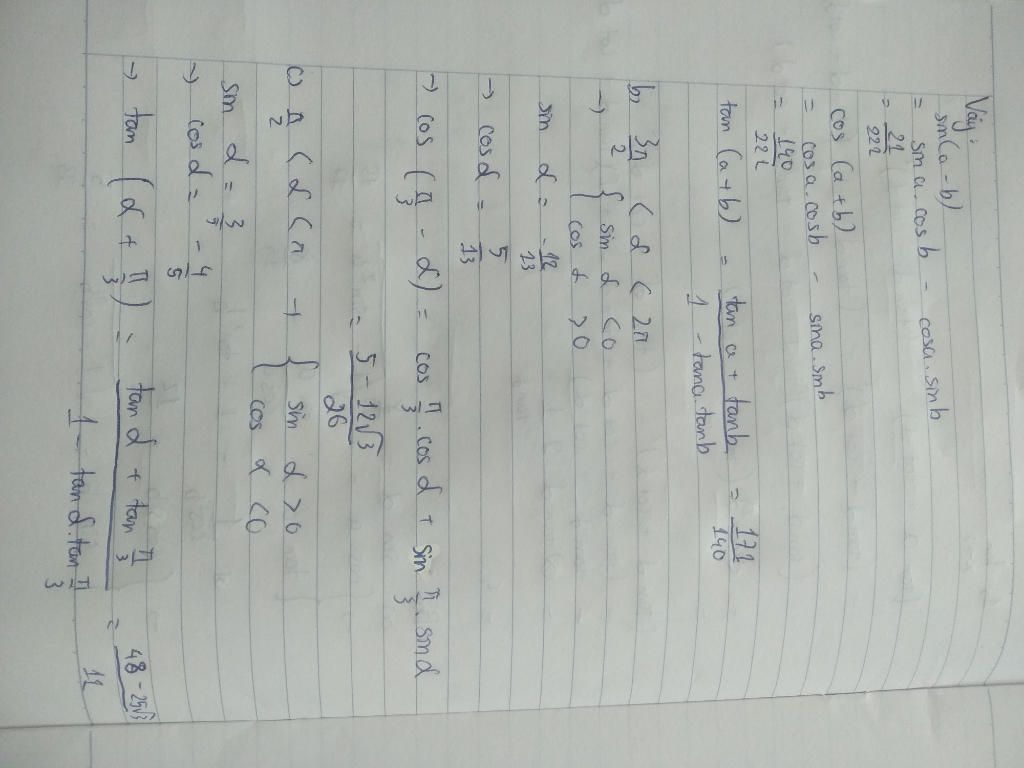 Vậy:
sin(a-b)
= sin a. cos b - cosa. sinb
= 21/221
cos (a+b)
= cosa.cosb - sina.sinb
= 140/221
tan (a+b) = (tan a + tanb)/(1 - tana.tanb) = 171/140
b) 3π/2 < α < 2π
→ { sin α < 0
cos α > 0
sin α = -12/13
→ cosα = 5/13
→ cos (π/3 - α) = cos π/3 . cos α + sin π/3 . sinα
= (5 - 12√3)/26
c) π/2 < α < π → { sin α > 0
cos α < 0
sin α = 3/5
→ cosα = -4/5
→ tan (α + π/3) = (tan α + tan π/3)/(1 - tan α.tan π/3) = (48 - 25√3)/11